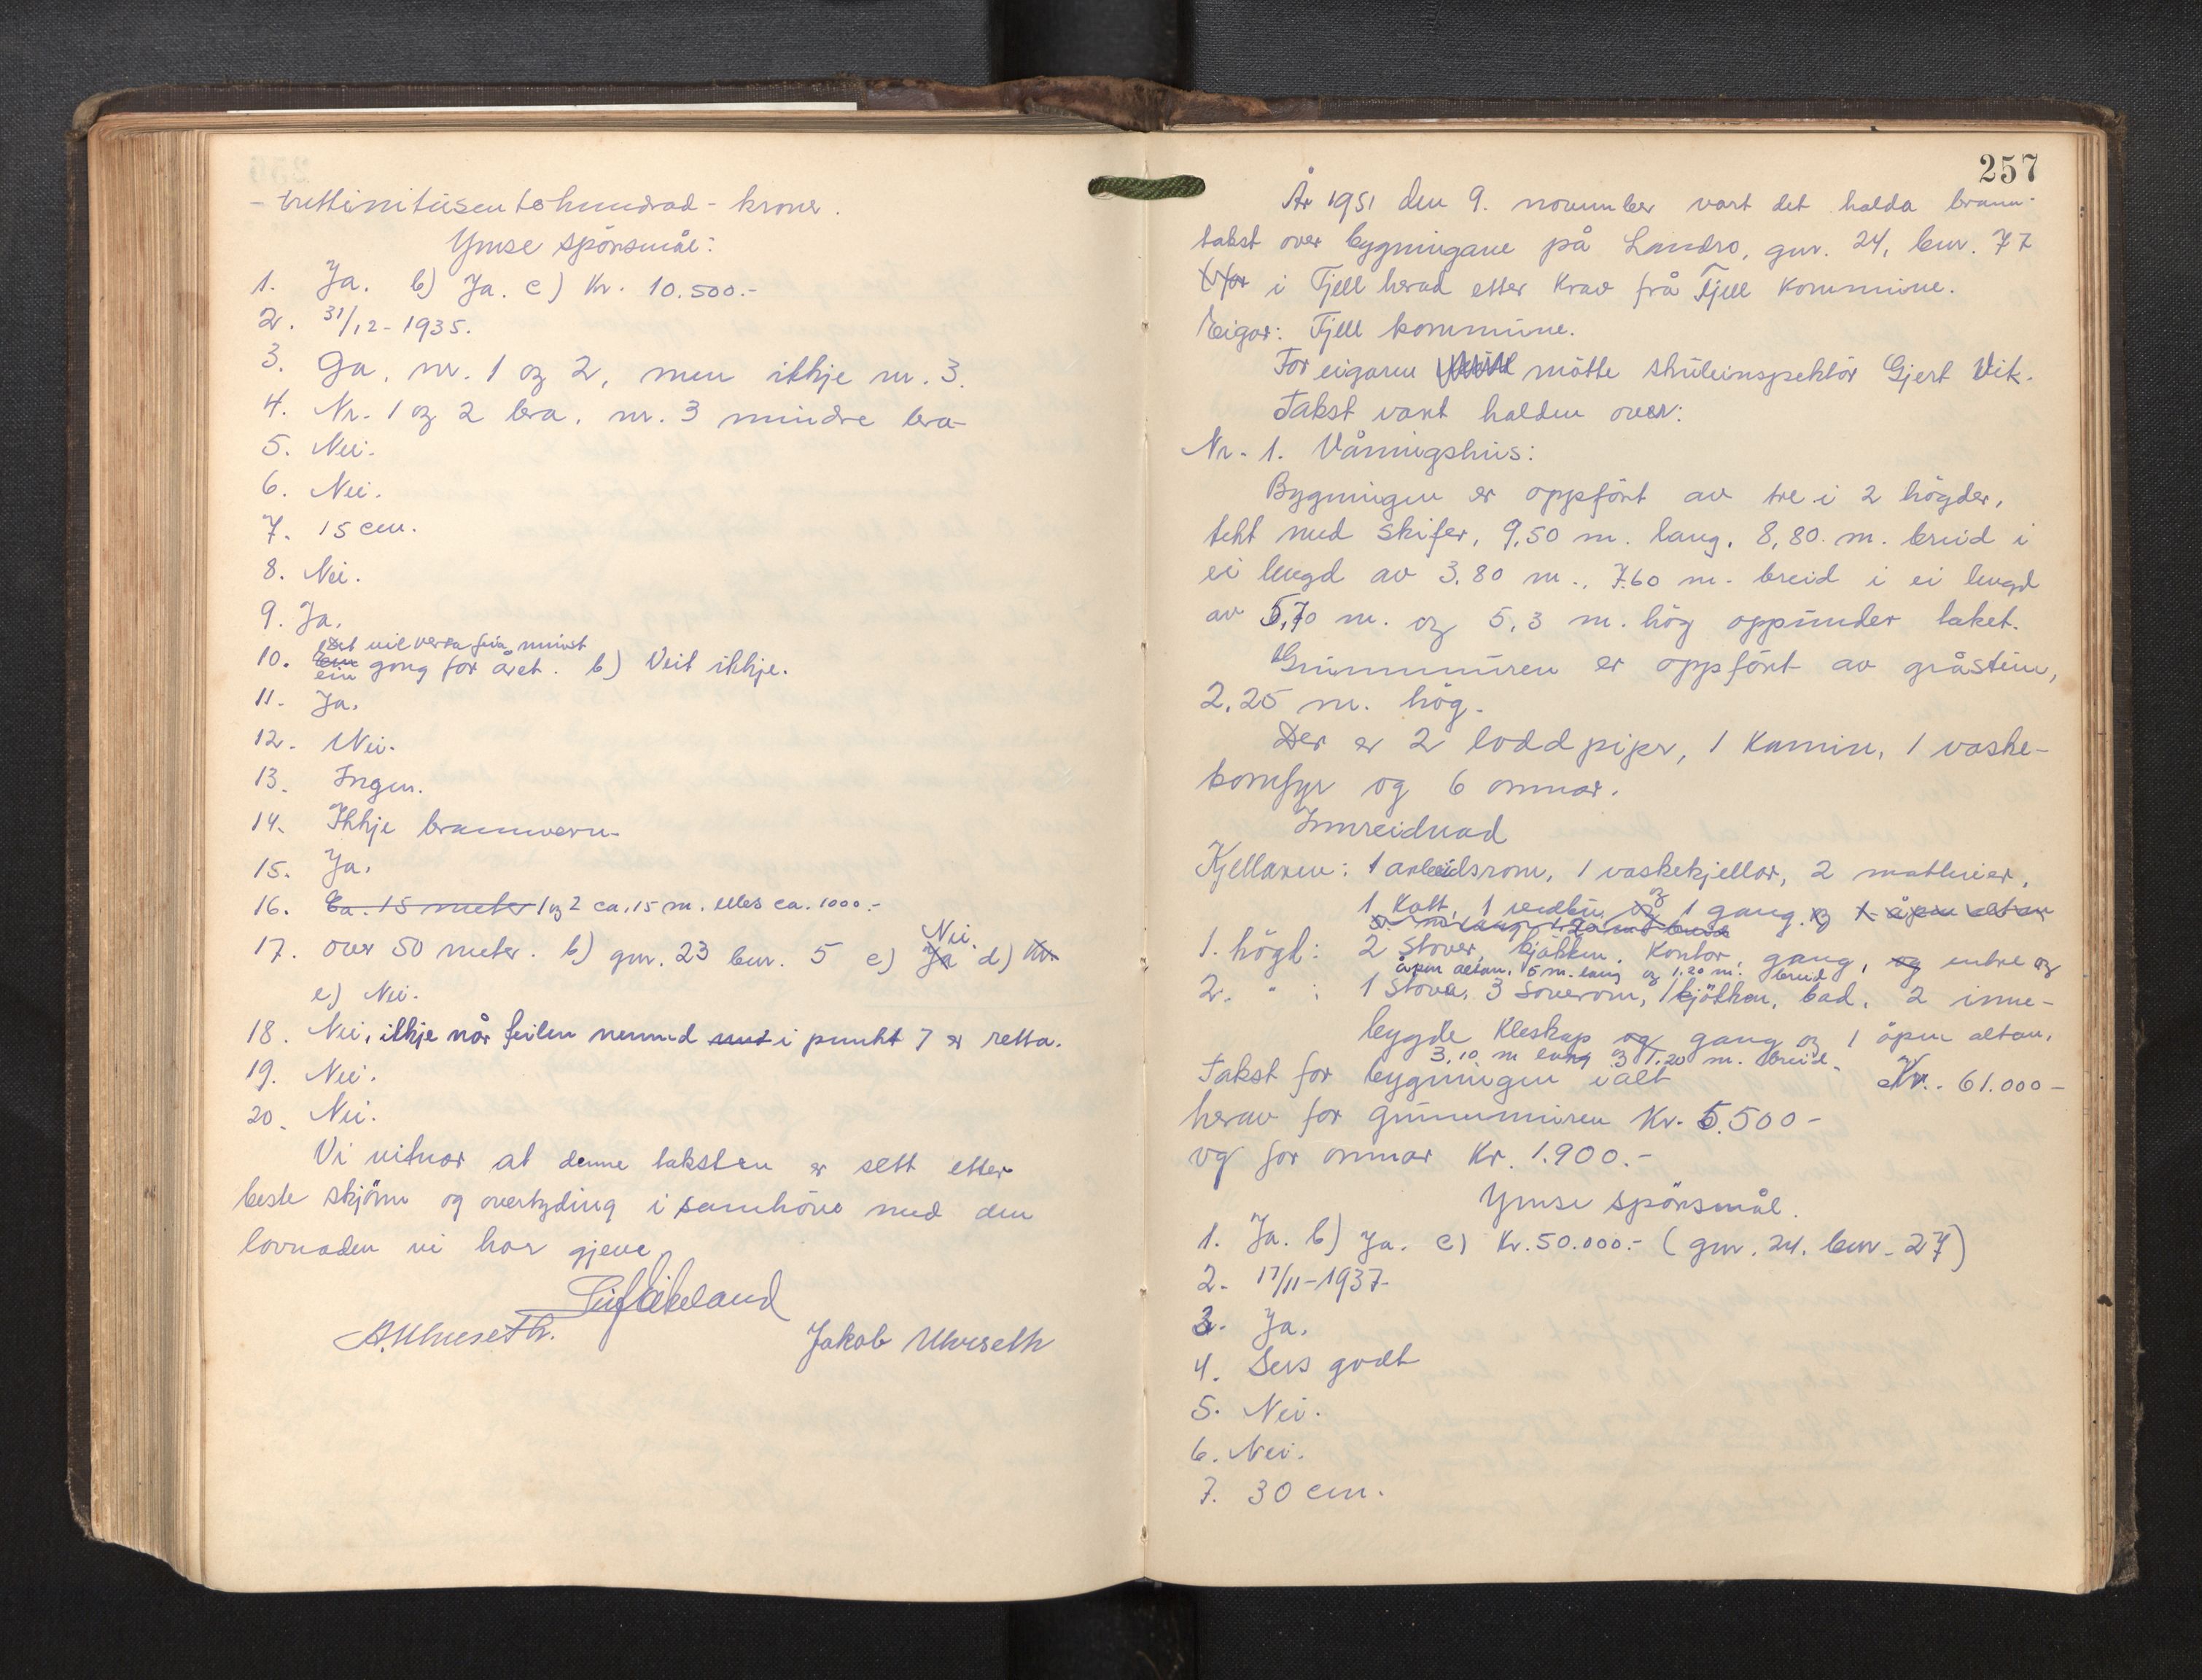 - trettinitusen tohundrad - kroner.
Ymse spörsmål:
1. Ja. b) Ja. c) Kr. 10.500.-
2. 31/12-1935.
3. Ja, nr. 1 og 2, men ikkje nr. 3.
4. Nr. 1 og 2 bra, nr. 3 mindre bra
5. Nei.
6. Nei.
7. 15 cm.
8. Nei.
9. Ja.
Det vil verta feia minst
10. ein gong for året. b) Veit ikkje.
11. Ja.
12. Nei.
13. Ingen.
14. Ikkje brannvern.
15. Ja.
16. Ca. 15 meter 1 og 2 ca. 15 m. elles ca. 1000.-
Nei.
17. over 50 meter. b) gnr. 23 bnr. 5 c) Ja d) Kr.
e) Nei.
18. Nei, ikkje når feilen nemnd i punkt 7 er retta.
19. Nei.
20. Nei.
Vi vitnar at denne taksten er sett etter
beste skjönn og overtyding i samhöve med den
lovnaden vi har gjeve
Leif Eikeland
A. Ulveseth. Jakob Ulveseth
257
År 1951 den 9. november vart det halda brann-
takst over bygningane på Landro, gnr. 24, bnr. 77
i Fjell herad etter krav frå Fjell kommune.
Eigar: Fjell kommune.
For eigaren mötte skuleinspektör Gjert Vik.
Takst vart halden over:
Nr. 1. Våningshus:
Bygningen er oppfört av tre i 2 högder,
tekt med skifer, 9,50 m. lang, 8,80 m. breid i
ei lengd av 3,80 m., 7.60 m. breid i ei lengd
av 5,70 m. og 5,3 m. hög oppunder taket.
Grunnmuren er oppfört av gråstein,
2,25 m. hög.
Der er 2 loddpiper, 1 kamin, 1 vaske-
komfyr og 6 omnar.
Innreidnad
Kjellaren: 1 arbeidsrom, 1 vaskekjellar, 2 matbuer,
1 kott, 1 vedbu og 1 gang. og 1 åpen altan
1. högd: 2 stover, kjökken, kontor, gang, og entre og
åpen altan, 5 m. lang og 1,20 m. breid
2. " : 1 stova, 3 soverom, 1 kjökken, bad, 2 inne-
bygde kleskap og gang og 1 åpen altan,
3,10 m lang og 1.20 m. breid.
Takst for bygningen ialt Kr. 61.000-
herav for grunnmuren Kr. 5.500-
og for omnar Kr. 1.900.-
Ymse spörsmål.
1. Ja. b) Ja. c) Kr. 50.000.- (gnr. 24, bnr. 27)
2. 17/11-1937.
3. Ja.
4. Sers godt
5. Nei.
6. Nei.
7. 30 cm.